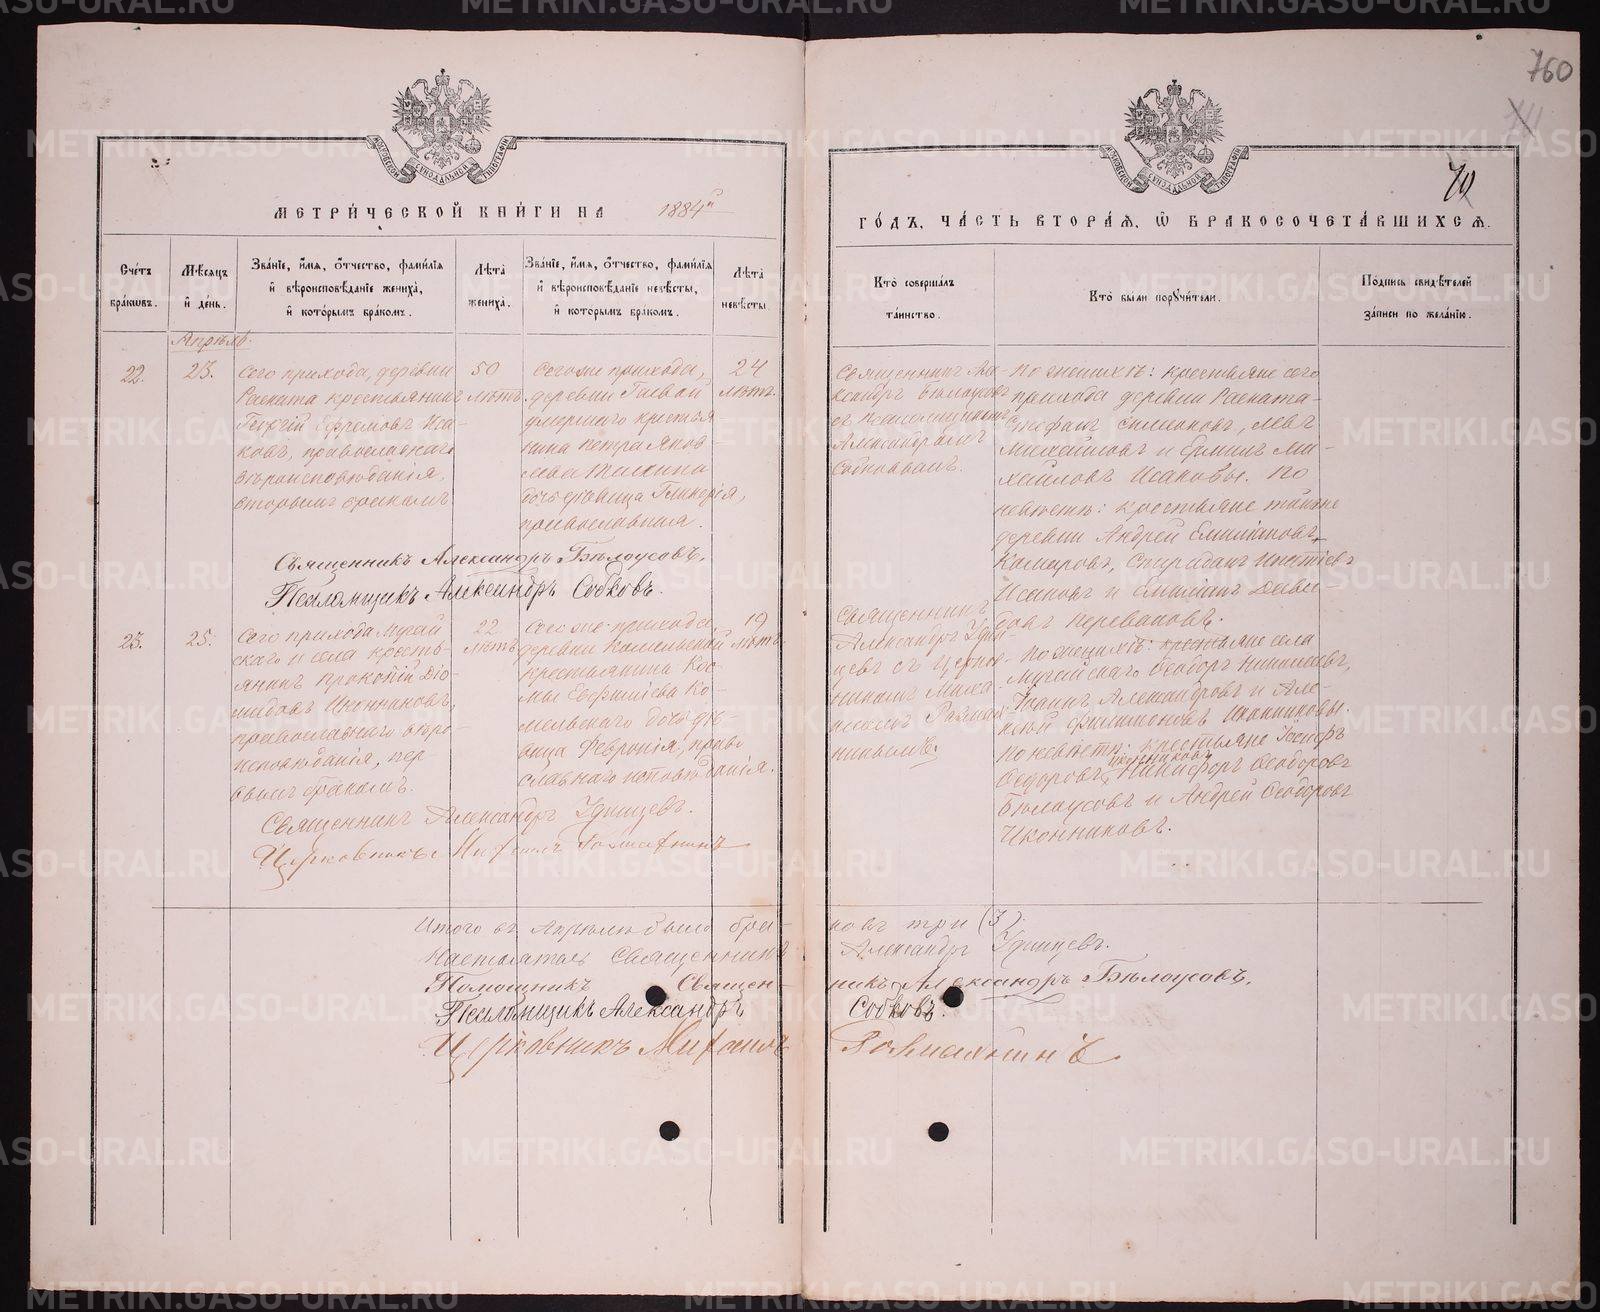 760
70
МЕТРИ́ЧЕСКОЙ КНИ́ГИ НА 1884й
ГО́ДЪ, ЧА́СТЬ ВТОРА́Ѧ, Ѡ БРАКОСОЧЕТА́ВШИХСѦ.
МОСКОВСКОЙ СѴНОДАЛЬНОЙ ТИПОГРАФІИ
МОСКОВСКОЙ СѴНОДАЛЬНОЙ ТИПОГРАФІИ
Сче́тъ
бра́кѡвъ.
Мѣ́сяцъ
и́ де́нь.
Зва́нїе, и́мѧ, ѻ́тчество, фами́лїѧ
и́ вѣроисповѣ́данїе жениха̀,
и́ кото́рымъ бра́комъ.
Лѣ́та
жениха̀.
Зва́нїе, и́мѧ, ѻ́тчество, фами́лїѧ
и́ вѣроисповѣ́данїе невѣ́сты,
и́ кото́рымъ бра́комъ.
Лѣ́та
невѣ́сты.
Кто̀ соверша́лъ
та́инство.
Кто̀ бы́ли порꙋчи́тели.
По́дпись свидѣ́телей
за́писи по жела́нїю.
Апрѣль.
22.
23.
Сего прихода, деревни
Раската крестьянинъ
Георгій Ефремовъ Иса-
ковъ, православнаго
вѣроисповѣданія,
вторымъ бракомъ
50
лѣтъ.
Сегоже прихода,
деревни
умершаго крестья
нина Петра Яков
лева
дочь дѣвица Гликерія,
православная.
24
лѣтъ.
Священникъ Але-
ксандръ Бѣлоусовъ
съ псаломщикомъ
Александромъ
Собковымъ.
По женихѣ: крестьяне сего
прихода деревни Раската-
Стефанъ Симеоновъ, Левъ
Михайловъ и Ермилъ Ми-
хайловъ Исаковы. По
невѣстѣ: крестьяне тойже
деревни Андрей Емиліановъ
Комаровъ, Спиридонъ Игнатіевъ
Исаковъ и Емиліанъ Дави-
довъ Переваловъ.
Священникъ Александръ Бѣлоусовъ.
Псаломщикъ Александръ Собковъ.
23.
25.
Сего прихода Мугай
скаго села кресть-
янинъ Прокопій Діо-
мидовъ Иконниковъ,
православнаго вѣро-
исповѣданія, пер
вымъ бракомъ.
22
лѣтъ
Сего же прихода,
деревни Комельской
крестьянина Кос-
мы Евфиміева Ко-
мельскаго дочь дѣ-
вица Февронія, право
славнаго исповѣданія.
19
лѣтъ.
Священникъ
Александръ Удинцевъ
съ церков-
никомъ Миха
иломъ
По женихѣ: крестьяне села
Мугайскаго Ѳеодоръ Николаевъ,
Іоаннъ Александровъ и Але-
ксѣй Филимоновъ Иконниковы.
По невѣстѣ: крестьяне Іосифъ
Ѳедоровъ Иконниковъ, Никифоръ Ѳеодоровъ
Бѣлоусовъ и Андрей Ѳеодоровъ
Иконниковъ.
Священникъ Александръ Удинцевъ.
Церковникъ Михаилъ
Итого въ Апрѣлѣ было бра-
ковъ три (3).
Настоятель Священникъ
Александръ Удинцевъ.
Помощникъ Священ-
никъ Александръ Бѣлоусовъ.
Псаломщикъ Александръ
Собковъ.
Церковникъ Михаилъ
METRIKI.GASO-URAL.RU